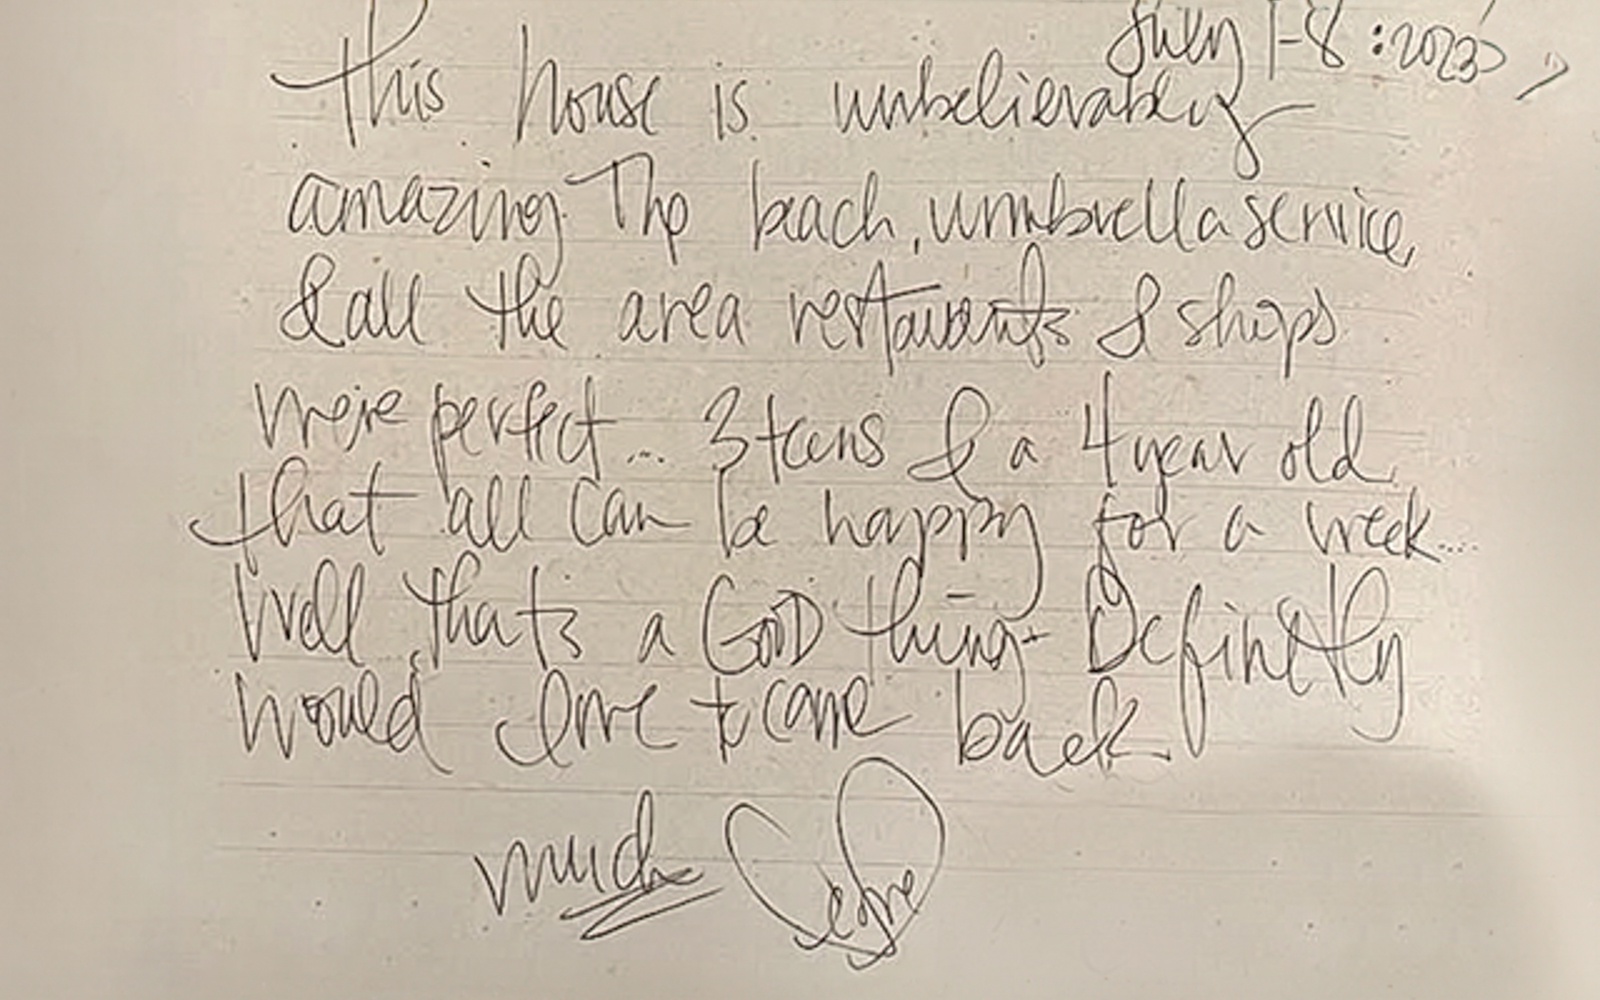 July 1-8 : 2023
This house is unbelievably
amazing. The beach, umbrella service,
& all the area restaurants & shops
were perfect... 3 teens & a 4 year old
that all can be happy for a week...
Well, that's a GOOD thing. Definetly
would love to come back
much